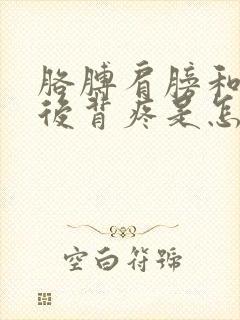 胳膊肩膀和
後背疼是怎
空白符號